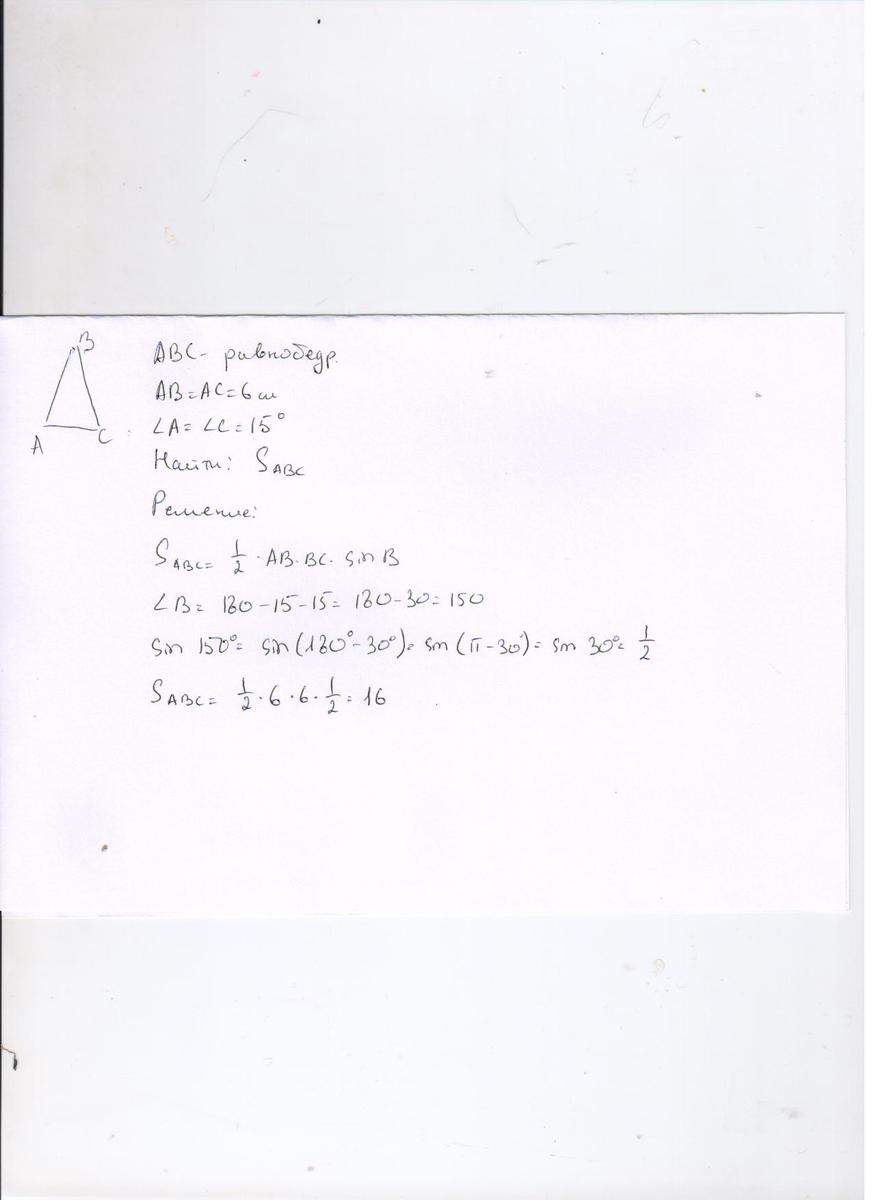 B
A
C
ABC - равнобедр.
AB = AC = 6 см
∠A = ∠C = 15°
Найти: S ABC
Решение:
S ABC = 1/2 · AB · BC · sin B
∠B = 180 - 15 - 15 = 180 - 30 = 150
sin 150° = sin (180° - 30°) = sin (π - 30°) = sin 30° = 1/2
S ABC = 1/2 · 6 · 6 · 1/2 = 16